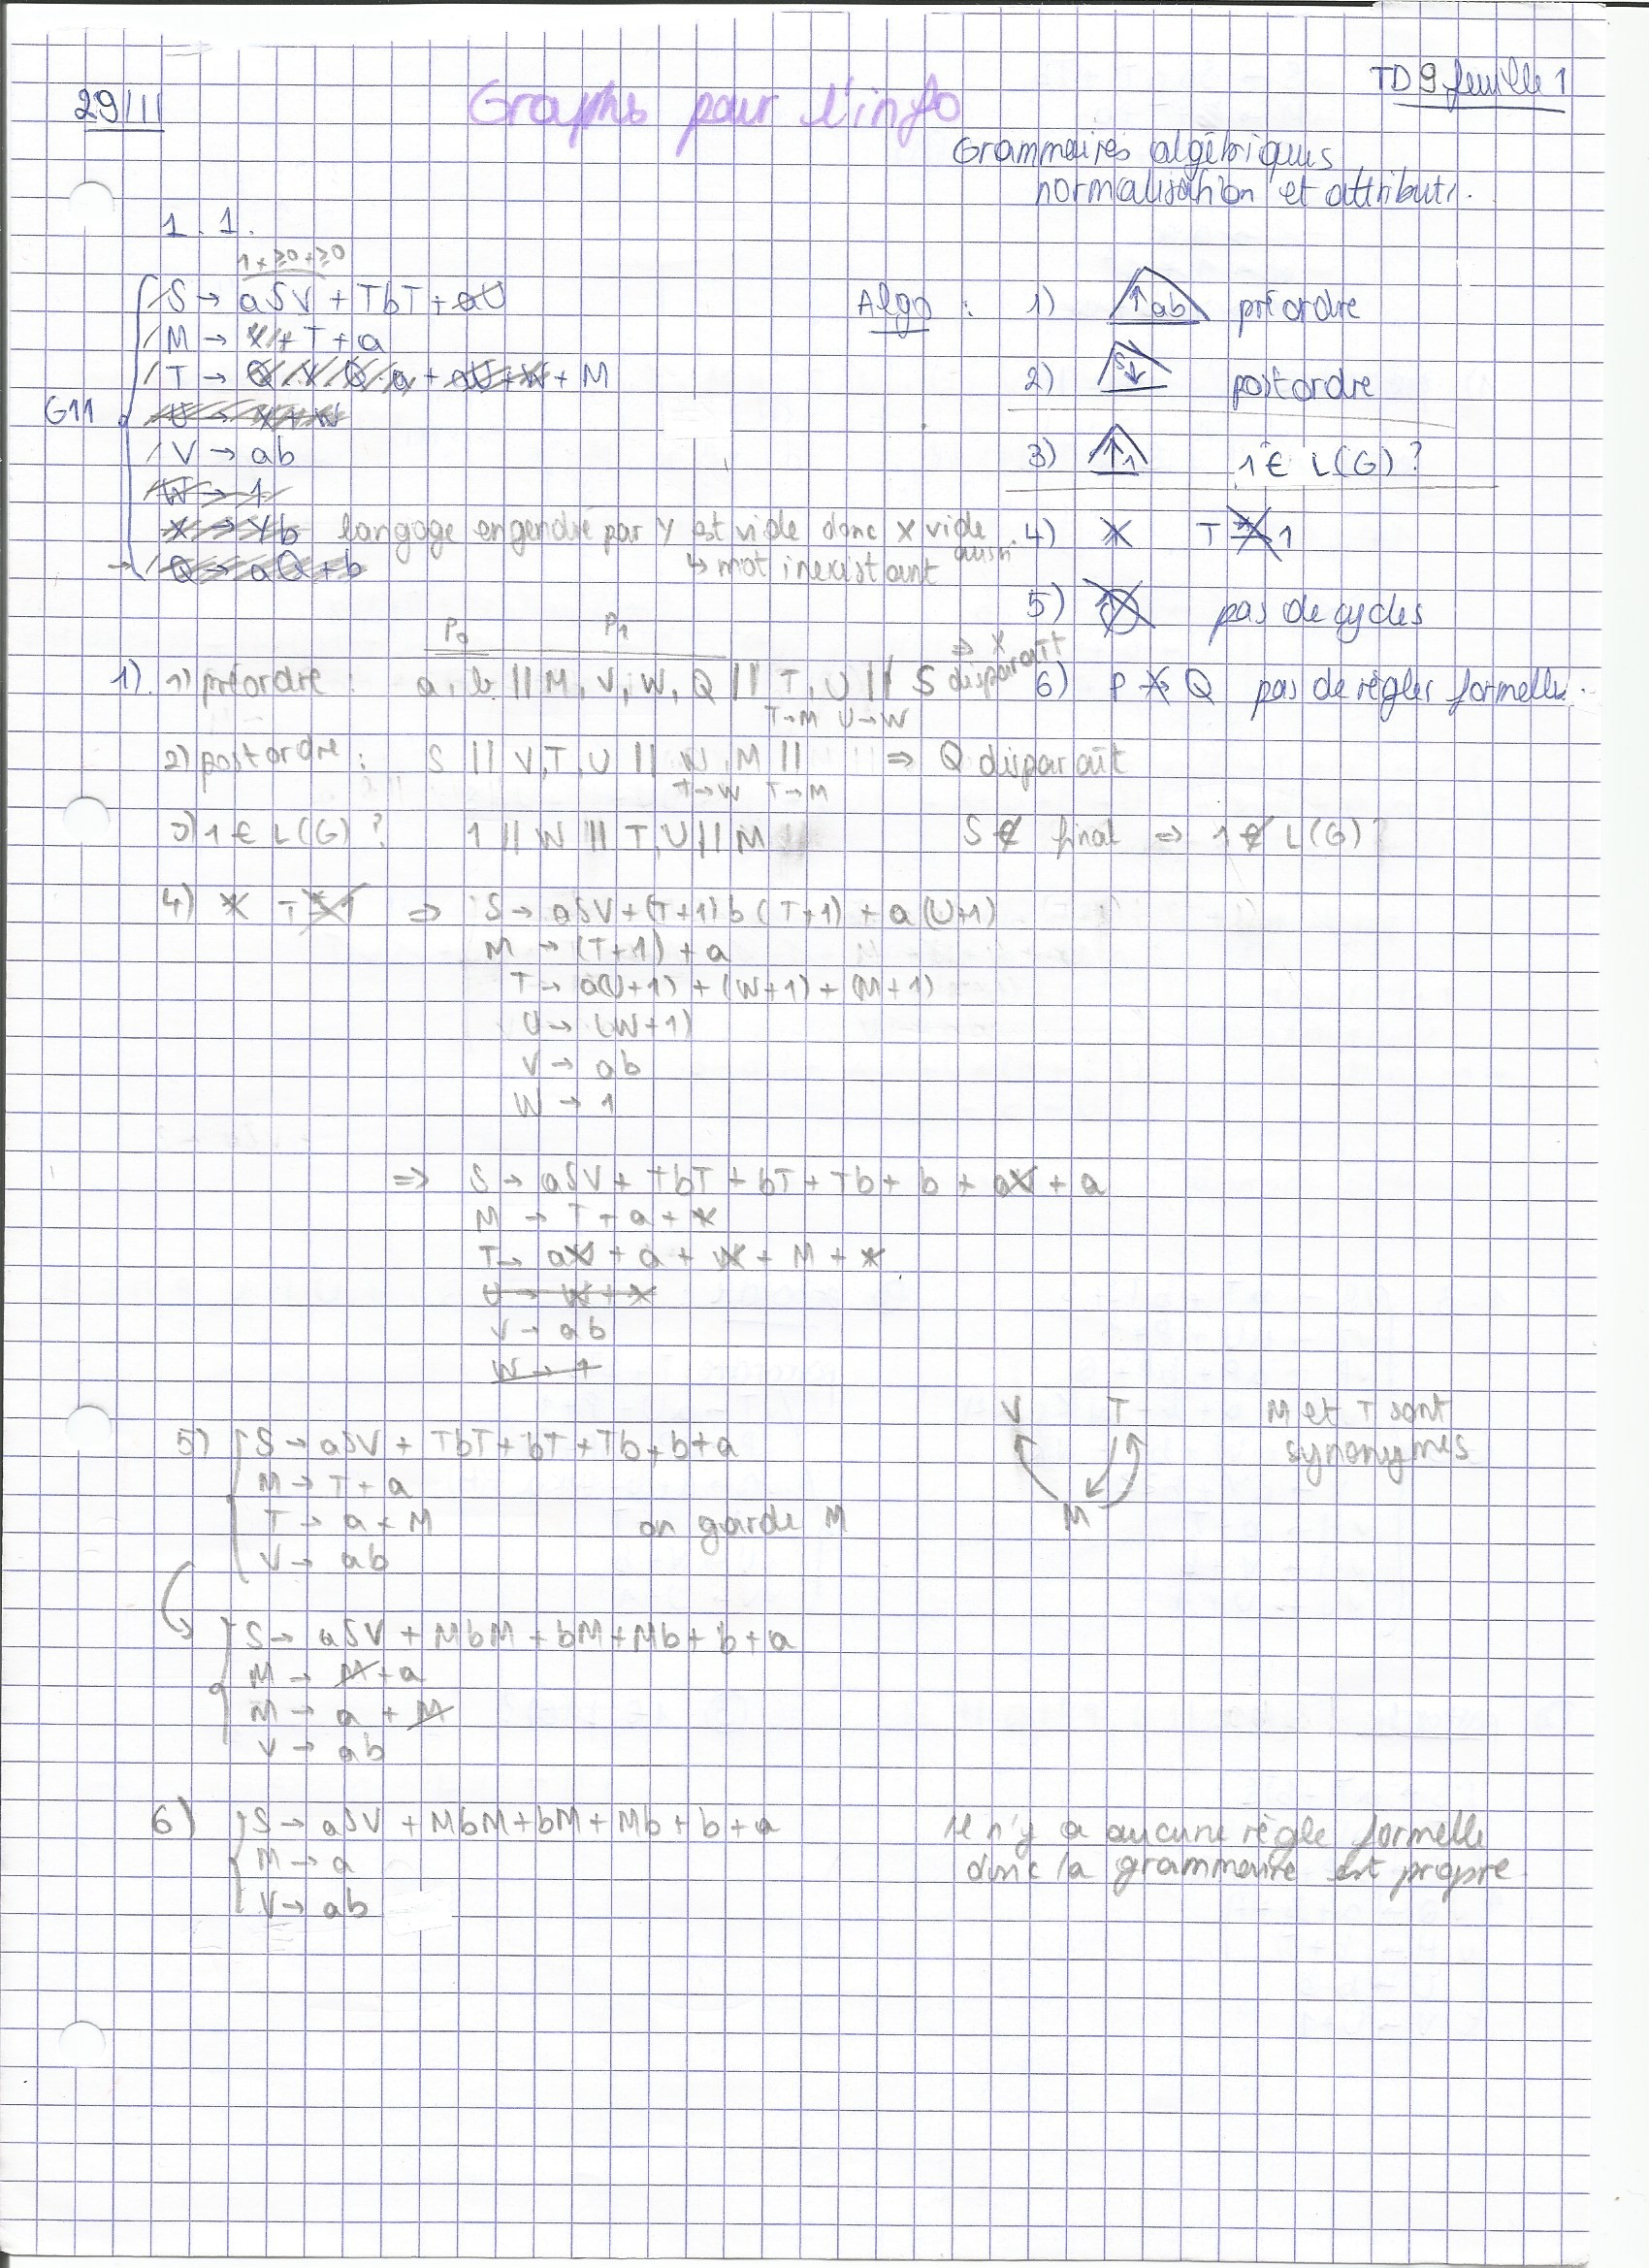 29/11
Graphs pour l'info
TD 9 feuille 1
Grammaires algébriques
normalisation et attributs.
1. 1.
1 + ≥0 + ≥0
G11
S → aSV + TbT + aU
M → X + T + a
T → Q Y Q a + aU + W + M
U → X + W
V → ab
W → 1
X → Yb langage engendré par Y est vide donc X vide aussi.
↳ mot inexistant
Q → aQ + b
Algo :
1) ↑ab préordre
2) S↓ postordre
3) ↑1 1 ∈ L(G) ?
4) T → 1
5) pas de cycles
6) P → Q pas de règles formelles.
P0 P1
1). 1) préordre : a, b || M, V, W, Q || T, U || S ⇒ X disparaît
T→M U→W
2) postordre : S || V,T,U || W, M || ⇒ Q disparaît
T→W T→M
3) 1 ∈ L(G) ? 1 || W || T,U || M S ∉ final ⇒ 1 ∉ L(G)
4) T → 1 ⇒ S → aSV + (T+1) b (T+1) + a(U+1)
M → (T+1) + a
T → a(U+1) + (W+1) + (M+1)
U → (W+1)
V → ab
W → 1
⇒ S → aSV + TbT + bT + Tb + b + aU + a
M → T + a + 1
T → aU + a + W + M + 1
U → W + 1
V → ab
W → 1
5) S → aSV + TbT + bT + Tb + b + a
M → T + a
T → a + M on garde M
V → ab
V T
M
M et T sont
synonymes
S → aSV + MbM + bM + Mb + b + a
M → M + a
M → a + M
V → ab
6) S → aSV + MbM + bM + Mb + b + a
M → a
V → ab
Il n'y a aucune règle formelle
donc la grammaire est propre